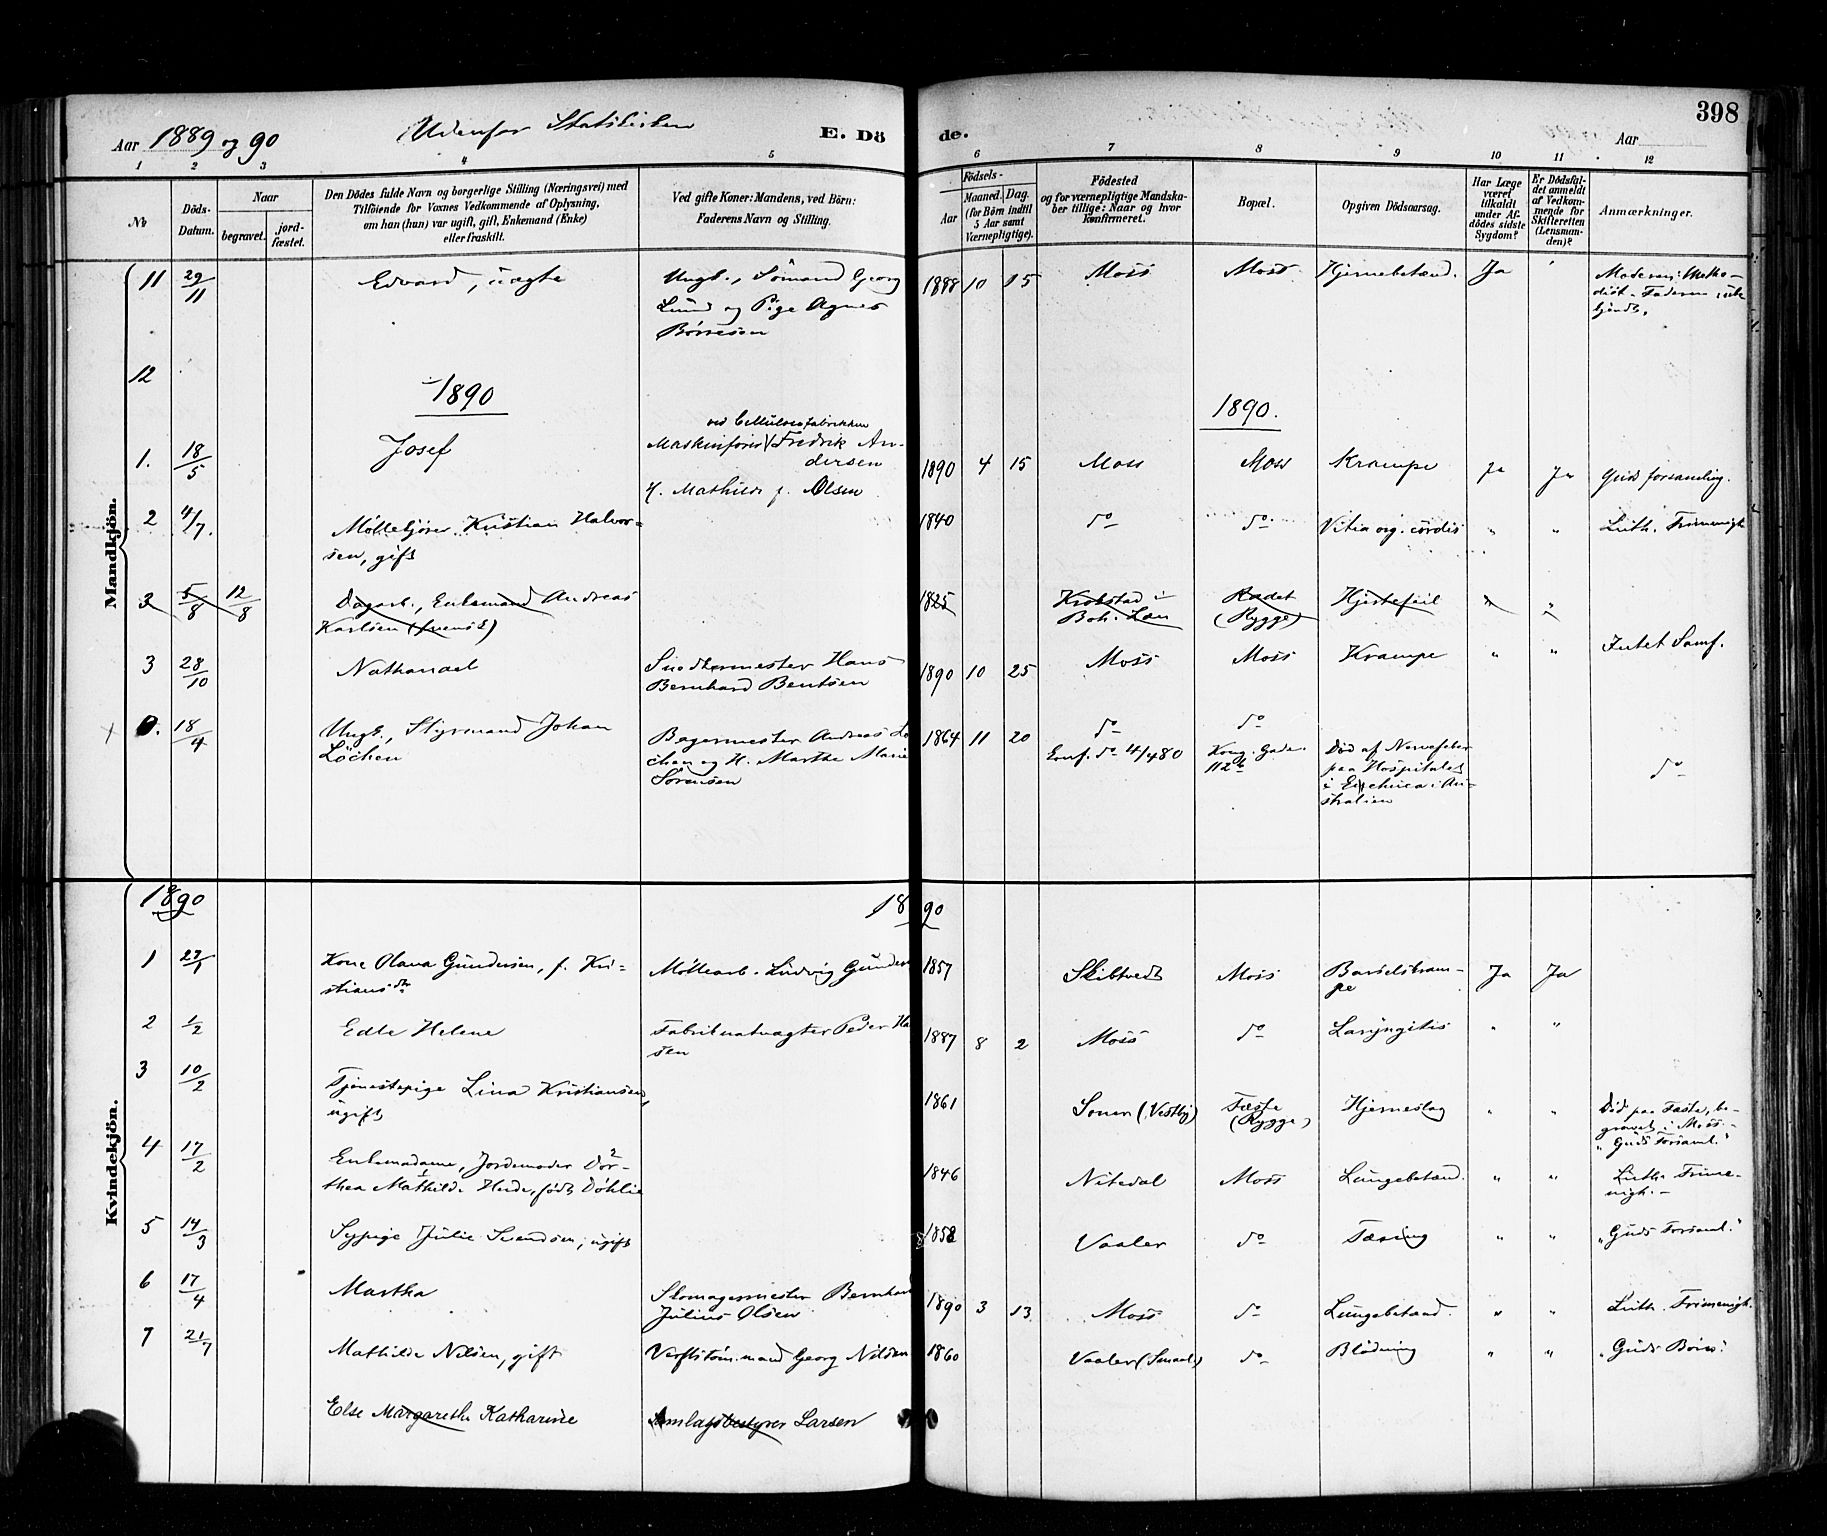 Aar 1889 og 90
Udenfor Statistiken
E. Dö
de.
Aar
398
1 2 3 4 5 6 7 8 9 10 11 12
No
Döds-
Datum.
Naar
begravet.
jord-
fæstet.
Den Dödes fulde Navn og borgerlige Stilling (Næringsvei) med
Tilföiende for Voxnes Vedkommende af Oplysning,
om han (hun) var ugift, gift, Enkemand (Enke)
eller fraskilt.
Ved gifte Koner: Mandens, ved Börn:
Faderens Navn og Stilling.
Födsels-
Aar
Maaned.
Dag.
(for Börn indtil
5 Aar samt
Værnepligtige).
Födested
og for værnepligtige Mandska-
ber tillige: Naar og hvor
konfirmeret.
Bopæl.
Opgiven Dödsaarsag.
Har Læge
været
tilkaldt
under Af-
dödes sidste
Sygdom?
Er Dödsfal-
det anmeldt
af Vedkom-
mende for
Skifteretten
(Lensman-
den)?
Anmærkninger.
Mandkjön.
11 29/11 Edvard, uægte Ungk., Sömand Georg 1888 10 15 Moss Moss Hjernebetænd. Ja
Lund og Pige Agnes
Börresen
Moderen: Metho-
dist. Faderen ube
kjendt.
12
1890
1890.
ved Cellulosefabrikken
1. 18/5 Josef Maskinförer Fredrik An-
dersen 1890 4 15 Moss Moss Krampe Ja Ja Guds forsamling.
H. Mathilde f. Olsen
2 4/7. Möllekjörer Kristian Halvor-
sen, gift 1840 do do. Vitia org. cordis " " Luth. Frimenigh
3 5/8 12/8 Dagarb., Enkemand Andreas
Karlsen (svensk) 1825 Krokstad i
Boh. Län Rødet
(Rygge) Hjertefeil " "
3 28/10 Nathanael Snedkermester Hans
Bernhard Bentsen 1890 10 25 Moss Moss Krampe " " Intet Samf.
18/4 Ungk., Styrmand Johan
Löchen Bagermester Andreas Lö
chen og H. Marthe Marie
Sörensen 1864 11 20 do
Conf. do 4/4 80 do
Kong. Gade.
112 b Död af Nervefeber
paa Hospitalet
i Echuca i Au-
stralien do
Kvindekjön.
1890
1890
1 27/1 Kone Olava Gundersen, f. Kri-
stiansdtr Möllearb. Ludvig Gunders 1857 Skibtvedt Moss Barselkram-
pe Ja Ja
2 1/2 Edle Helene Fabriknatvagter Peder Ha
sen 1887 8 2 Moss do Laryngitis " "
3 10/2 Tjenestepige Lina Kristiansen,
ugift 1861 Sonen (Vestby) Fæste
(Rygge) Hjerneslag " " Död paa Fæste, be-
gravet i Moss.-
"Guds Forsaml."
4 17/2 Enkemadame, Jordemoder Dor-
thea Mathilde Heide, födt Döhlie 1846 Nitedal Moss Lungebetænd. " " Luth. Frime-
nigh.-
5 14/3 Sypige Julie Svendsen, ugift 1858 Vaaler do Tæring " " "Guds Forsaml."
6 17/4 Martha Skomagermester Bernhar
Julius Olsen 1890 3 13 Moss do Lungebetænd. " " Luth. Frimenigh.
7 21/7 Mathilde Nilsen, gift Verftstöm.mand Georg Nilsen 1860 Vaaler (Smaal.) do Blödning " " "Guds Börn"
Else Margarethe Katharine Amlagsbestyrer Larsen